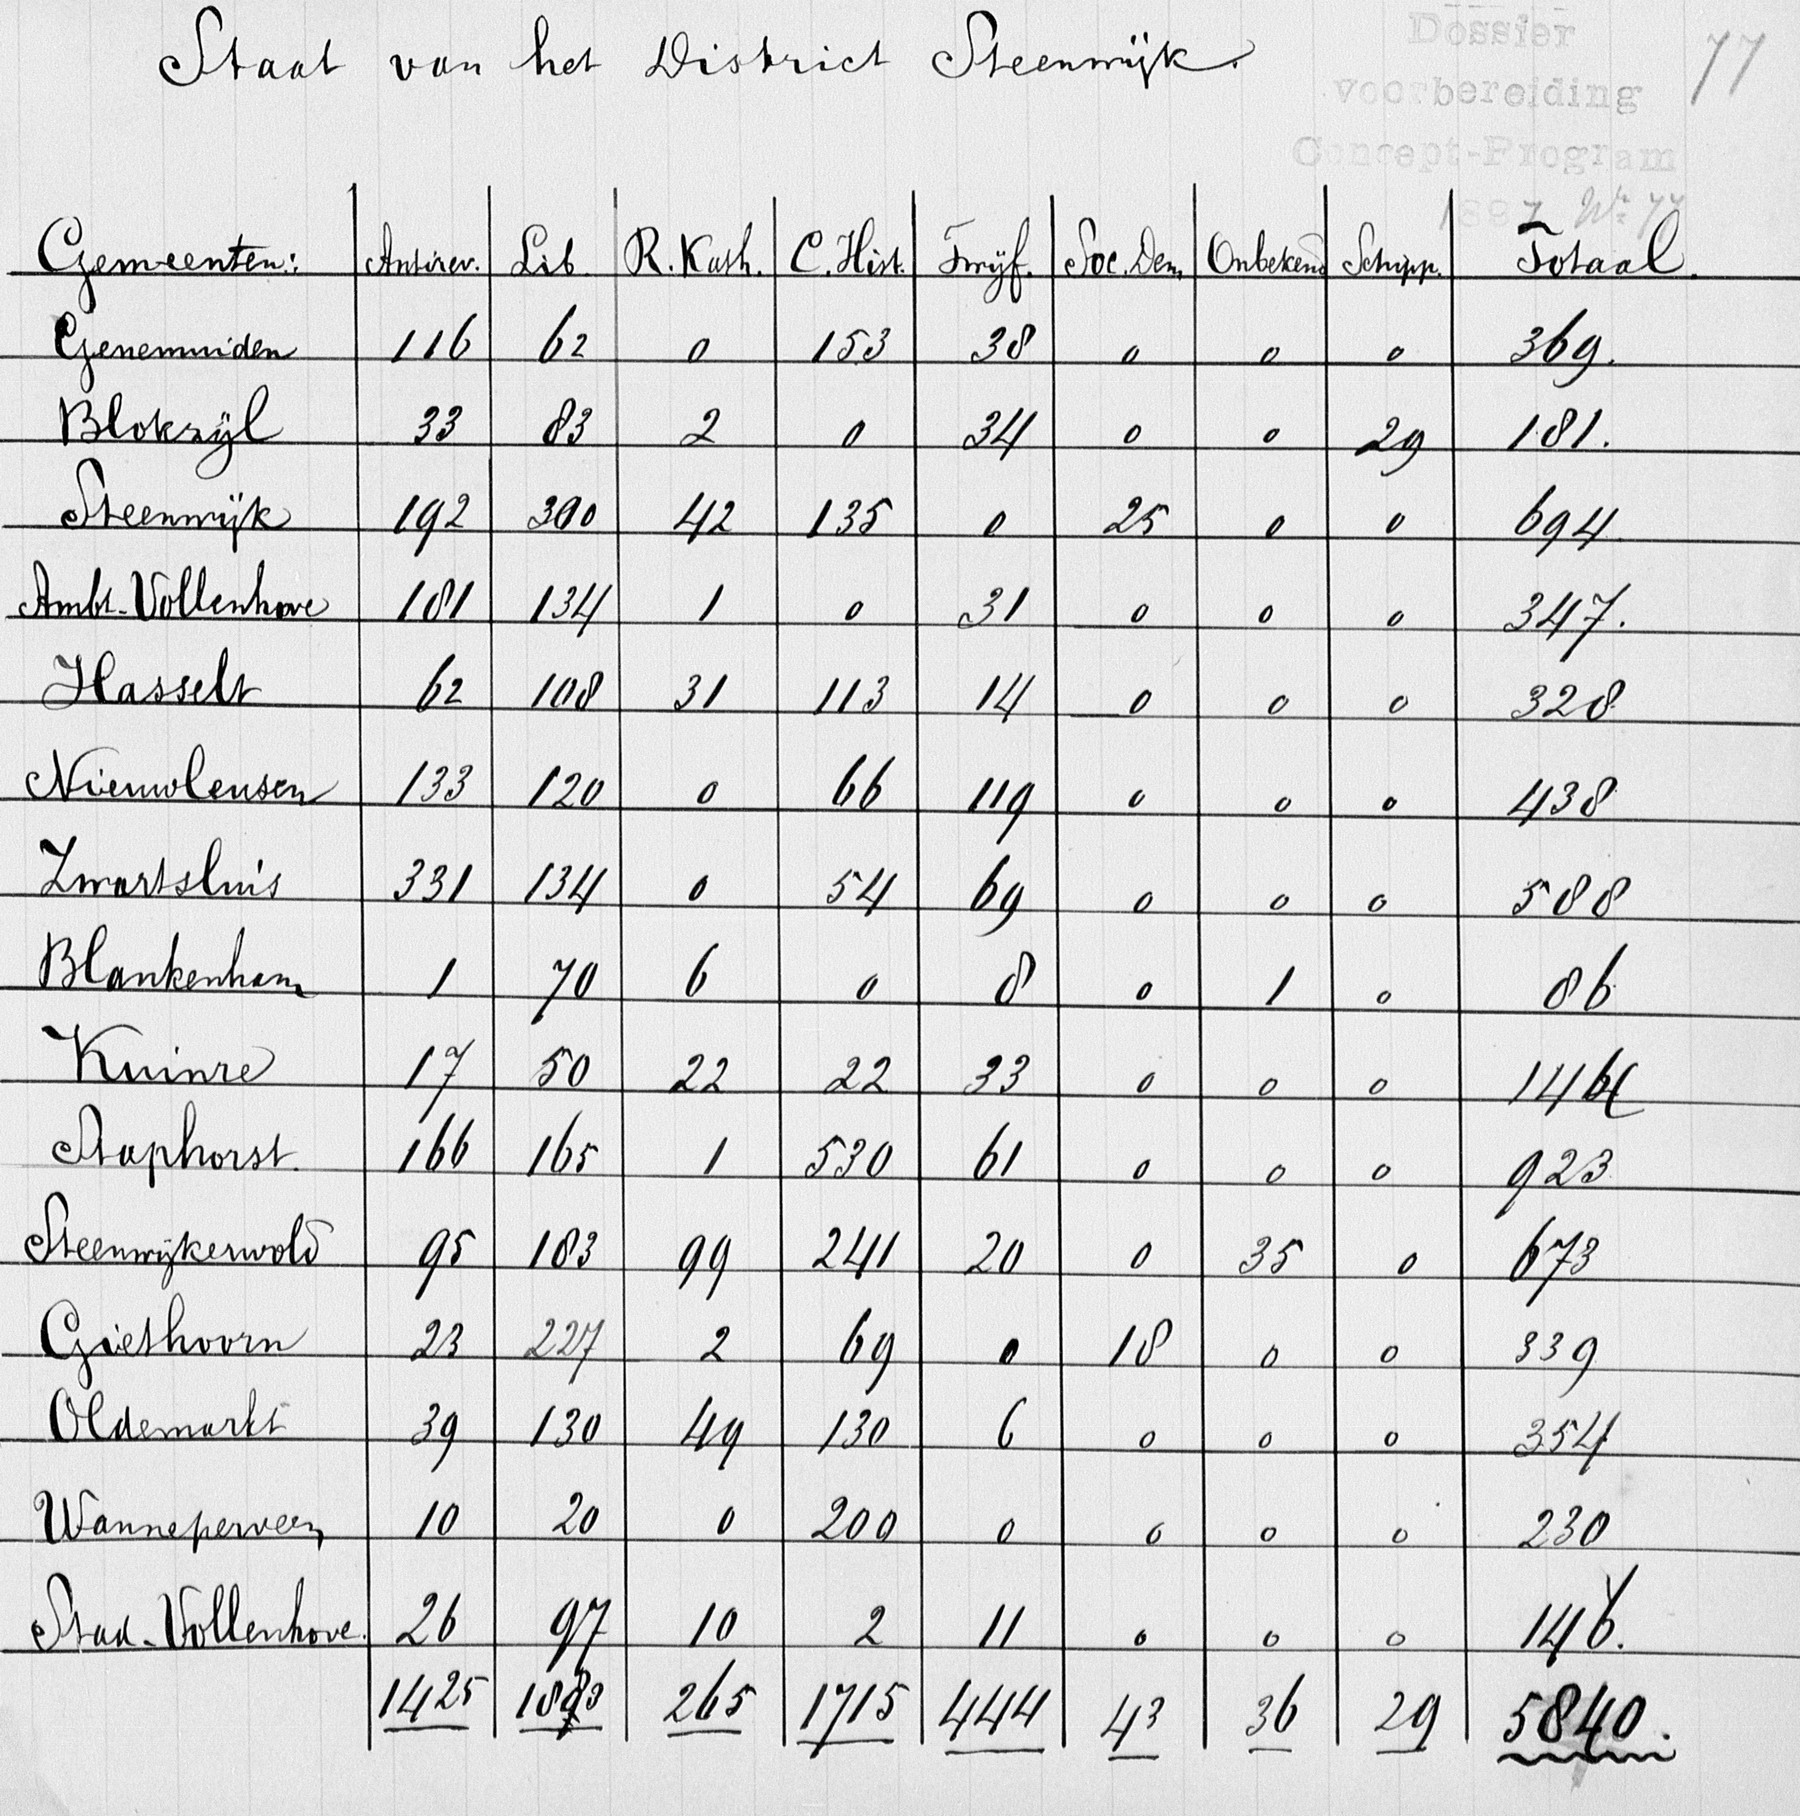 Staat van het District Steenwijk.
Dossier
voorbereiding
Concept-Program
1897 No 77
77
Gemeenten: Antirev. Lib. R. Kath. C. Hist. Twijf. Soc. Dem. Onbekend Schipp. Totaal.
Genemuiden 116 62 0 153 38 0 0 0 369.
Blokzijl 33 83 2 0 34 0 0 29 181.
Steenwijk 192 300 42 135 0 25 0 0 694
Ambt-Vollenhove 181 134 1 0 31 0 0 0 347.
Hasselt 62 108 31 113 14 0 0 0 328
Nieuwleusen 133 120 0 66 119 0 0 0 438
Zwartsluis 331 134 0 54 69 0 0 0 588
Blankenham 1 70 6 0 8 0 1 0 86
Kuinre 17 50 22 22 33 0 0 0 144
Staphorst. 166 165 1 530 61 0 0 0 923
Steenwijkerwold 95 183 99 241 20 0 35 0 673
Giethoorn 23 227 2 69 0 18 0 0 339
Oldemarkt 39 130 49 130 6 0 0 0 354
Wanneperveen 10 20 0 200 0 0 0 0 230
Stad-Vollenhove. 26 97 10 2 11 0 0 0 146.
1425 1883 265 1715 444 43 36 29 5840.